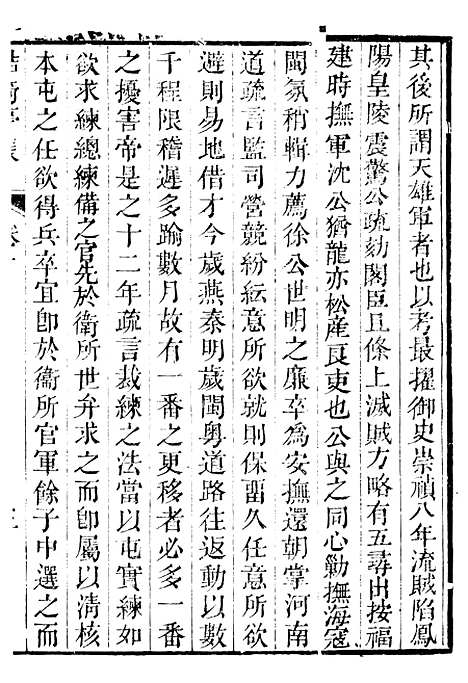 其後所謂天雄軍者也以考最擢御史崇禎八年流賊陷鳳
陽皇陵震驚公疏劾閣臣且條上滅賊方略有五尋出按福
建時撫軍沈公猶龍亦松產良吏也公與之同心勦撫海寇
閩氛稍輯力薦徐公世明之廉卒爲安撫還朝掌河南
道疏言監司營競紛紜意所欲就則保畱久任意所欲
避則易地借才今歲燕秦明歲閩粵道路往返動以數
千程限稽遲多踰數月故有一番之更移者必多一番
之擾害帝是之十二年疏言裁練之法當以屯實練如
欲求練總練備之官先於衛所世弁求之而卽屬以淸核
本屯之任欲得兵卒宜卽於衞所官軍餘子中選之而